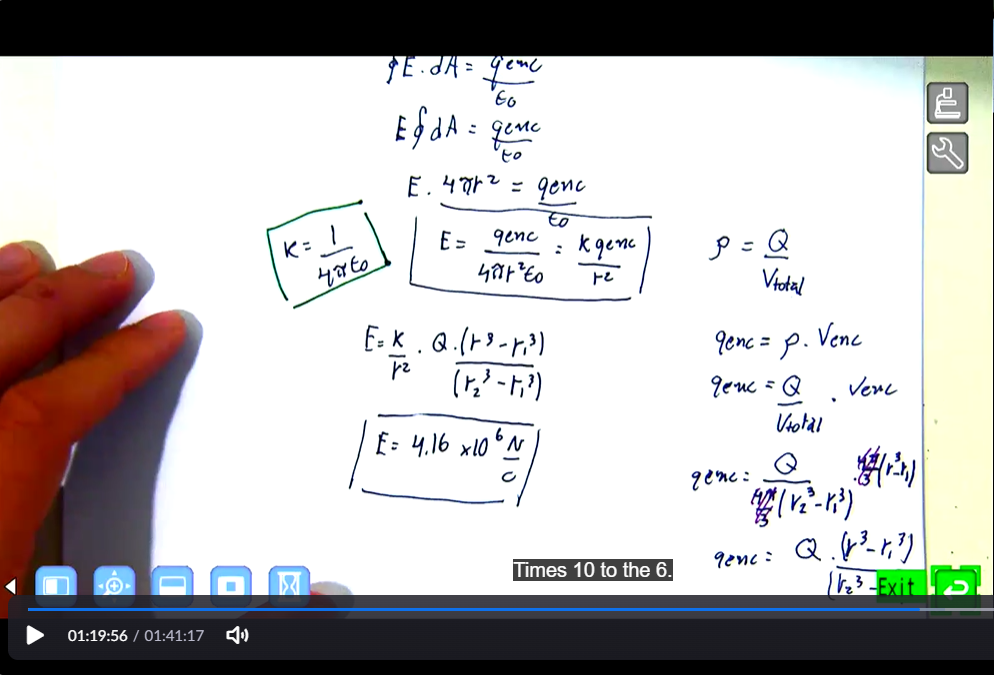 ∮E.dA = qenc/ε0
E∮dA = qenc/ε0
E. 4πr² = qenc/ε0
K = 1/4πε0
E = qenc/4πr²ε0 = k qenc/r²
ρ = Q/Vtotal
E = K/r² . Q.(r³-r₁³)/(r₂³-r₁³)
qenc = ρ. Venc
qenc = Q/Vtotal . Venc
E = 4.16 x10⁶ N/C
qenc = Q/4π/3(r₂³-r₁³) . 4π/3(r³-r₁)
qenc = Q.(r³-r₁³)/(r₂³-
Times 10 to the 6.
Exit
01:19:56 / 01:41:17